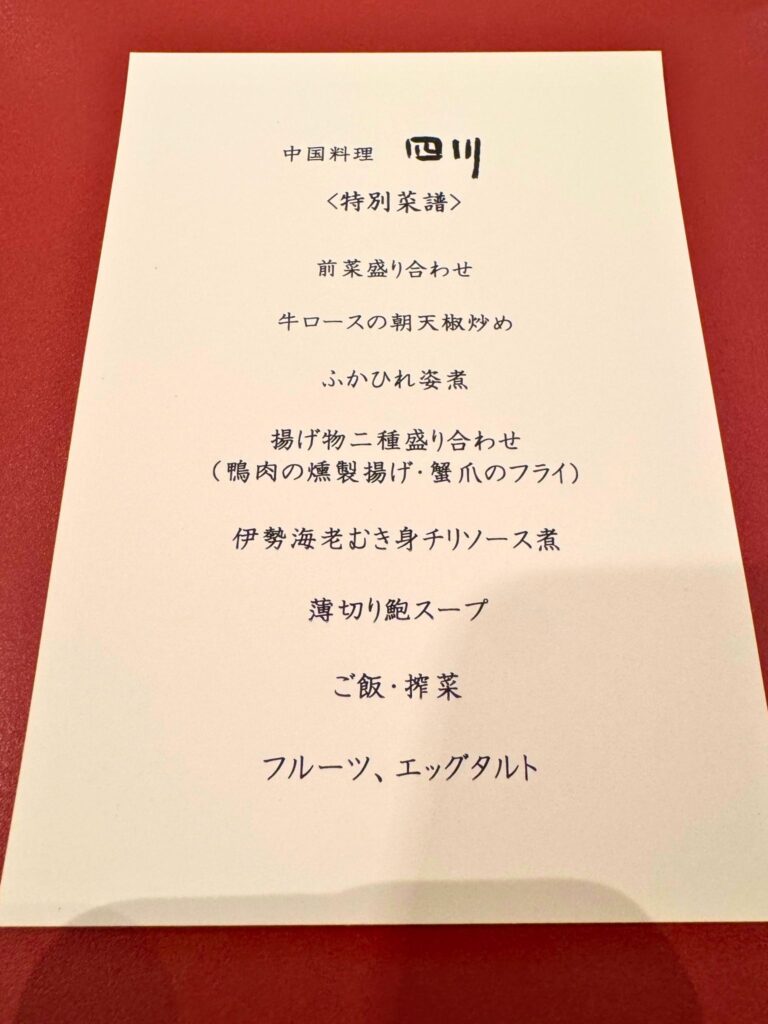 中国料理 四川
<特別菜譜>
前菜盛り合わせ
牛ロースの朝天椒炒め
ふかひれ姿煮
揚げ物二種盛り合わせ
（鴨肉の燻製揚げ・蟹爪のフライ）
伊勢海老むき身チリソース煮
薄切り鮑スープ
ご飯・搾菜
フルーツ、エッグタルト